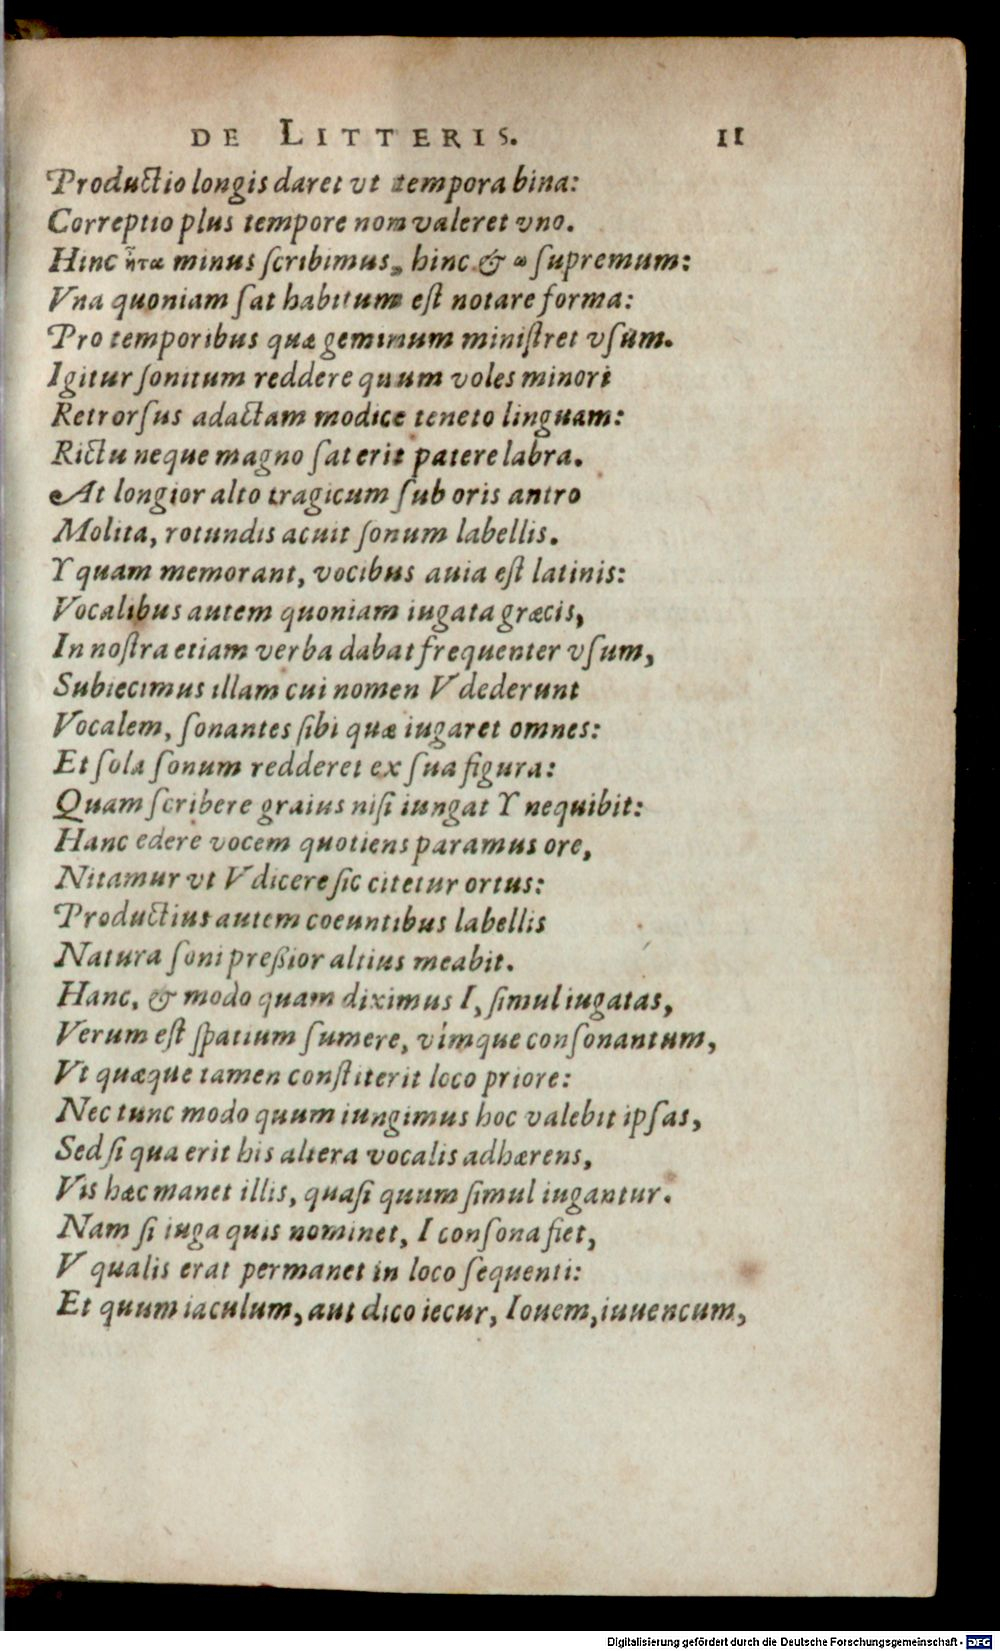 DE LITTERIS. 11
Productio longis daret vt tempora bina:
Correptio plus tempore non valeret vno.
Hinc ἦτα minus ſcribimus, hinc & ω ſupremum:
Vna quoniam ſat habitum eſt notare forma:
Pro temporibus quæ geminum miniſtret vſum.
Igitur ſonitum reddere quum voles minori
Retrorſus adactam modice teneto linguam:
Rictu neque magno ſat erit patere labra.
At longior alto tragicum ſub oris antro
Molita, rotundis acuit ſonum labellis.
Y quam memorant, vocibus auia eſt latinis:
Vocalibus autem quoniam iugata græcis,
In noſtra etiam verba dabat frequenter vſum,
Subiecimus illam cui nomen V dederunt
Vocalem, ſonantes ſibi quæ iugaret omnes:
Et ſola ſonum redderet ex ſua figura:
Quam ſcribere graius niſi iungat Y nequibit:
Hanc edere vocem quotiens paramus ore,
Nitamur vt V dicere ſic citetur ortus:
Productius autem coeuntibus labellis
Natura ſoni preßior altius meabit.
Hanc, & modo quam diximus I, ſimul iugatas,
Verum eſt ſpatium ſumere, vímque conſonantum,
Vt quæque tamen conſtiterit loco priore:
Nec tunc modo quum iungimus hoc valebit ipſas,
Sed ſi qua erit his altera vocalis adhærens,
Vis hæc manet illis, quaſi quum ſimul iugantur.
Nam ſi iuga quis nominet, I conſona fiet,
V qualis erat permanet in loco ſequenti:
Et quum iaculum, aut dico iecur, Iouem, iuuencum,
Digitalisierung gefördert durch die Deutsche Forschungsgemeinschaft - DFG